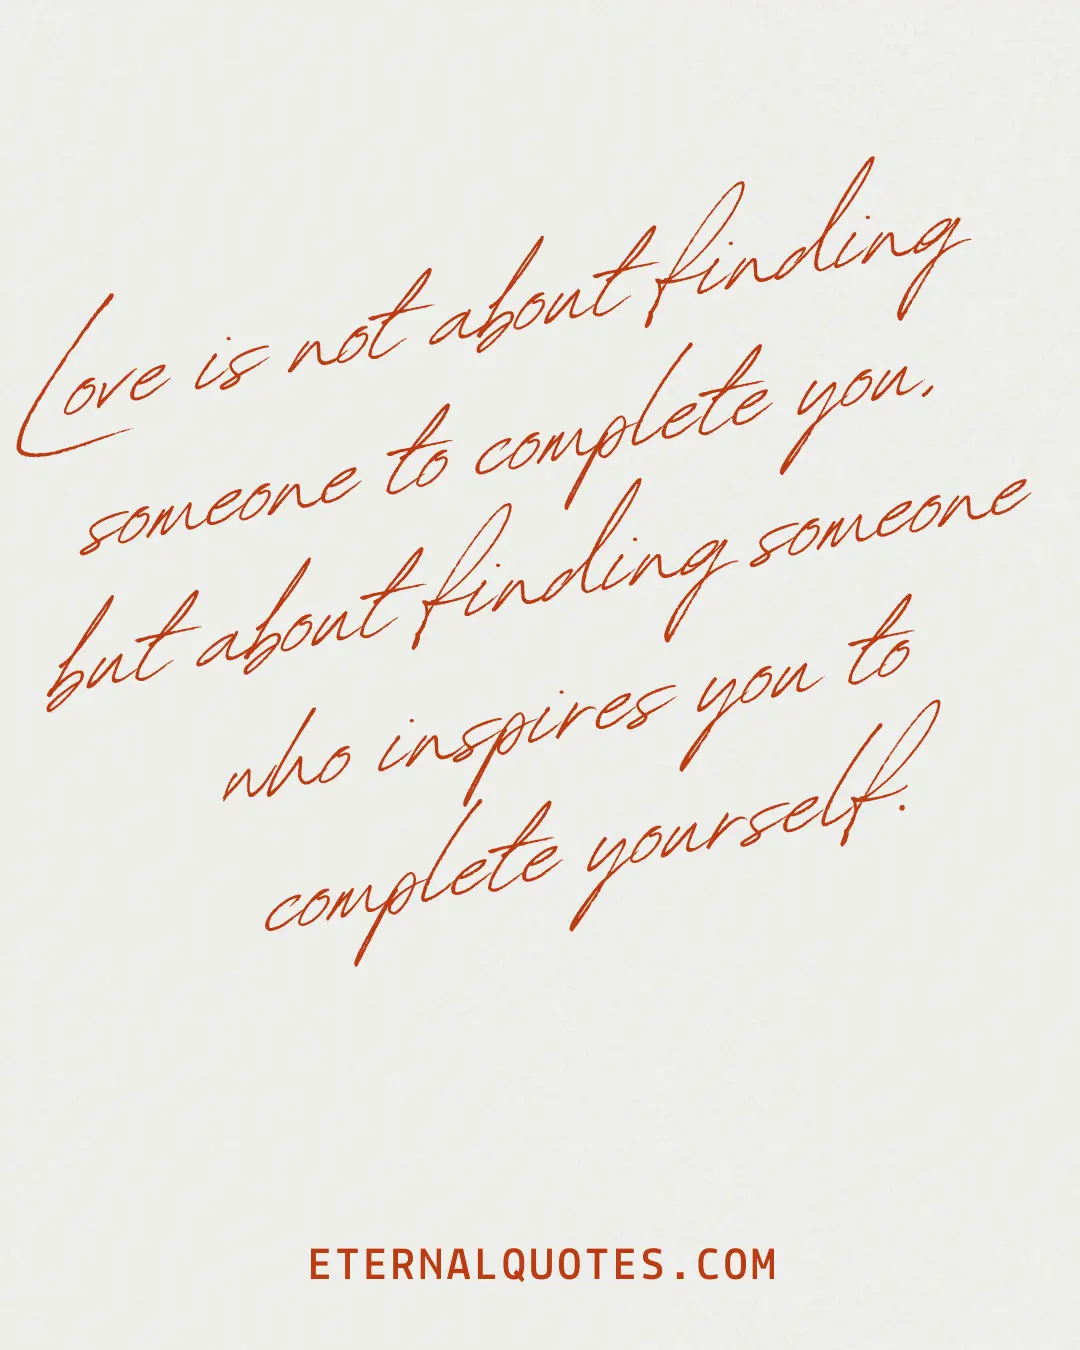 Love is not about finding
someone to complete you,
but about finding someone
who inspires you to
complete yourself.
ETERNALQUOTES.COM